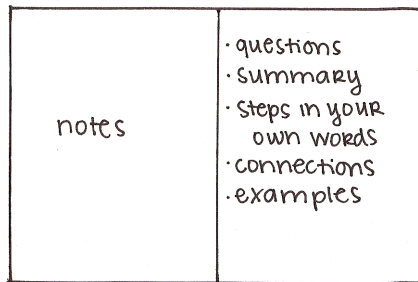 notes
· questions
· summary
· steps in your
own words
· connections
· examples